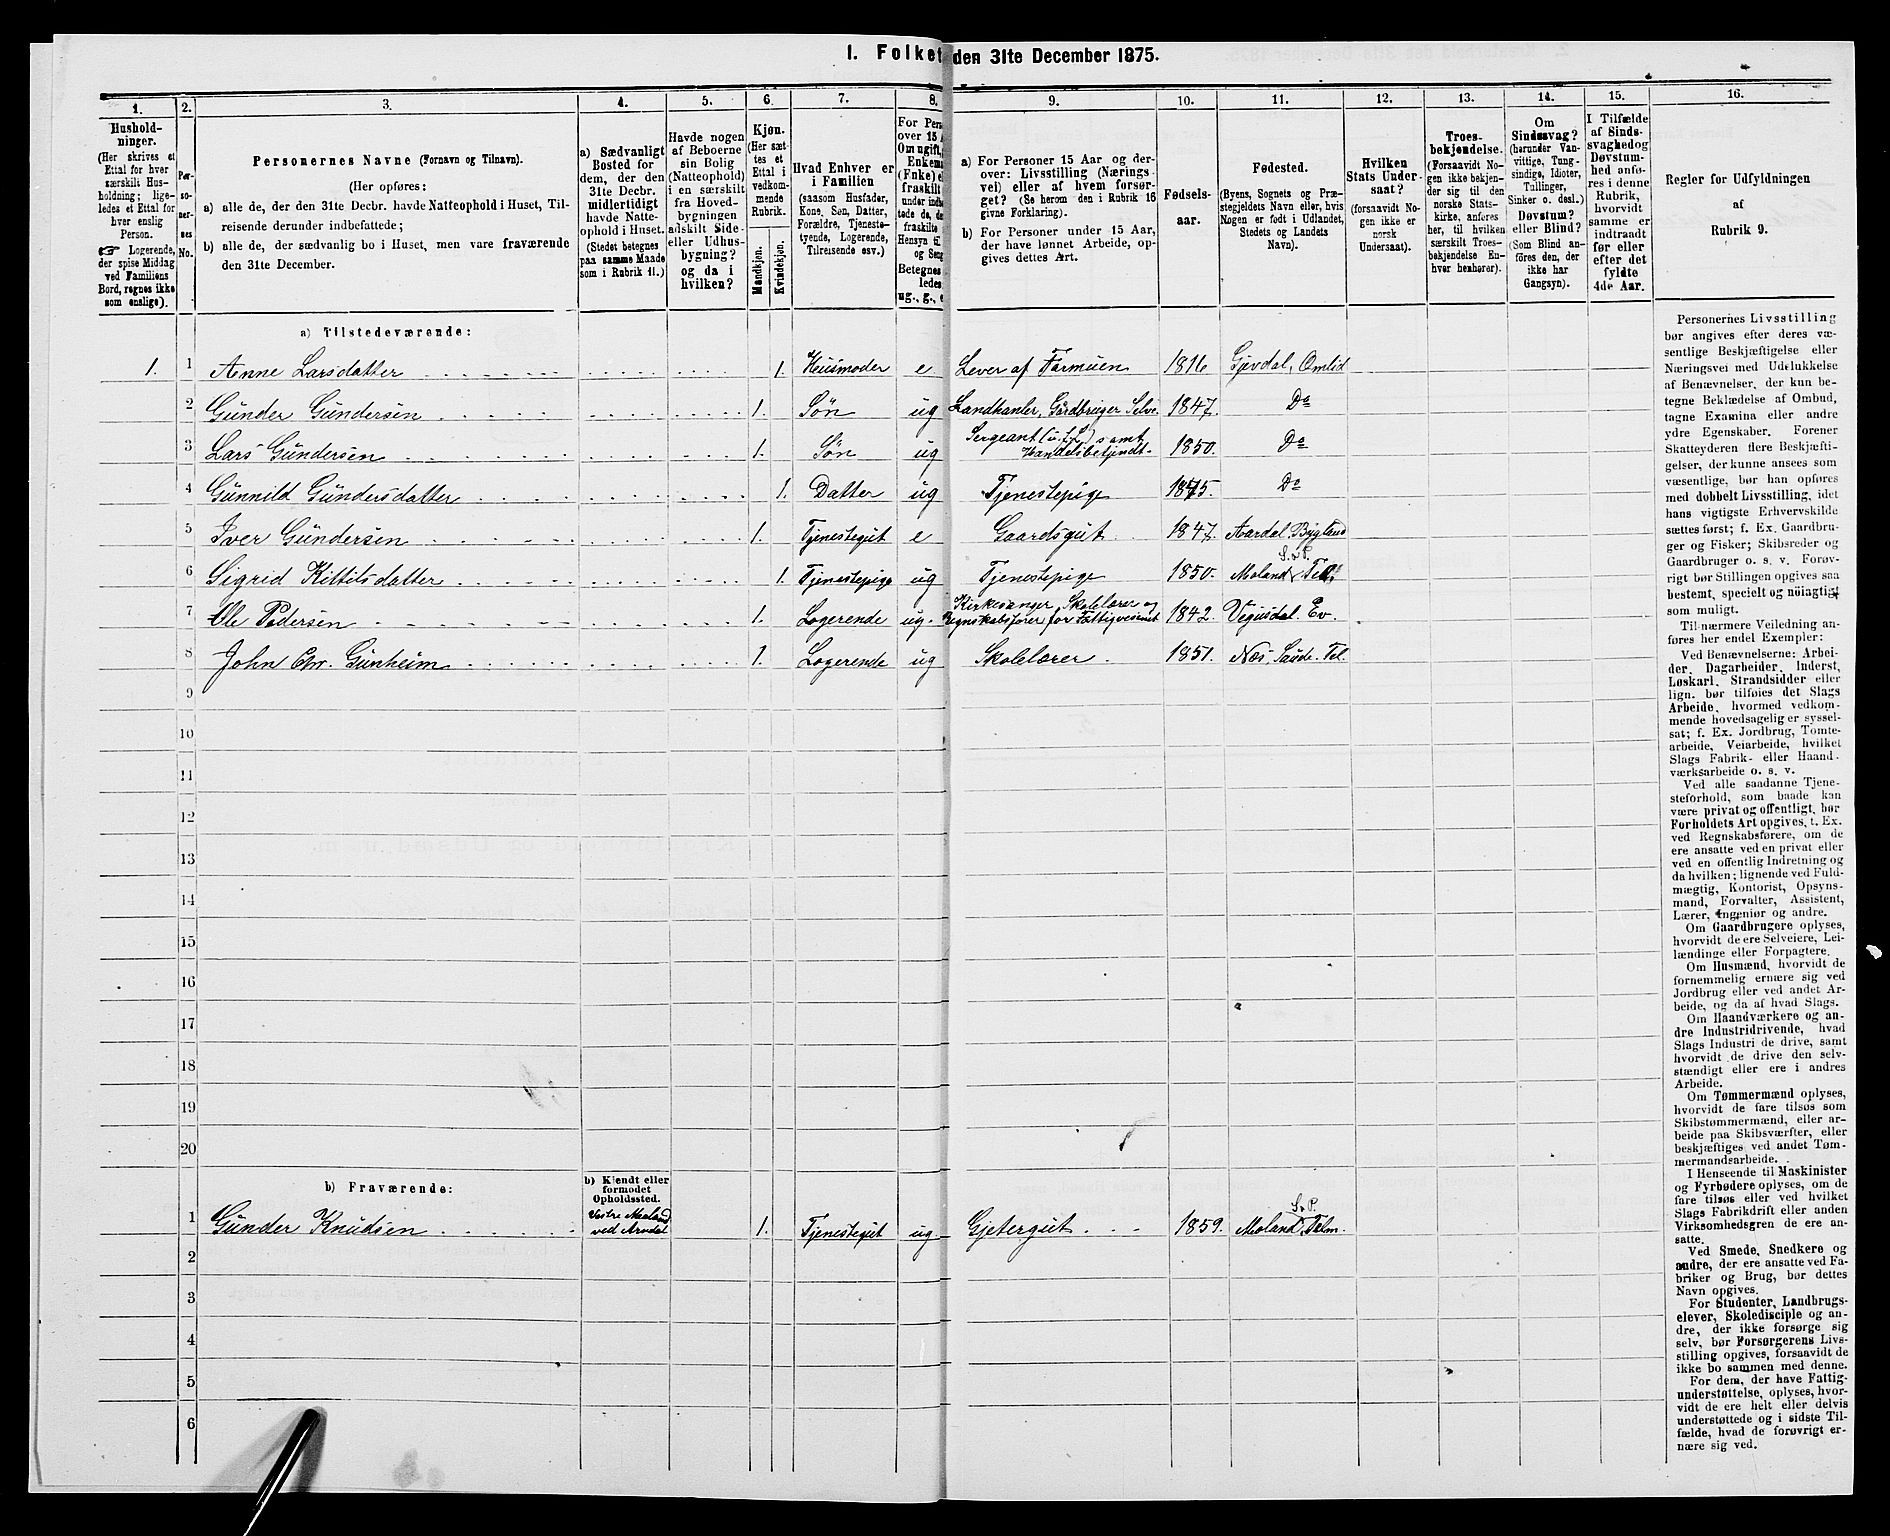 I. Folket
den 31te December 1875.
1.
2.
3.
4.
5.
6.
7.
8.
9.
10.
11.
12.
13.
14.
15.
16.
Hushold-
ninger.
(Her skrives et
Ettal for hver
særskilt Hus-
holdning; lige-
ledes et Ettal for
hver enslig
Person.
☞ Logerende,
der spise Middag
ved Familiens
Bord, regnes ikke
som enslige).
Per-
so-
ner-
nes
No.
Personernes Navne (Fornavn og Tilnavn).
(Her opføres:
a) alle de, der den 31te Decbr. havde Natteophold i Huset, Til-
reisende derunder indbefattede;
b) alle de, der sædvanlig bo i Huset, men vare fraværende
den 31te December.
a) Sædvanligt
Bosted for
dem, der den
31te Decbr.
midlertidigt
havde Natte-
ophold i Huset.
(Stedet betegnes
paa samme Maade
som i Rubrik 11.)
Havde nogen
af Beboerne
sin Bolig
(Natteophold)
i en særskilt
fra Hoved-
bygningen
adskilt Side-
eller Udhus-
bygning?
og da i
hvilken?
Kjøn.
(Her sæt-
tes et
Ettal i
vedkom-
mende
Rubrik.
Mandkjøn.
Kvindekjøn.
Hvad Enhver er
i Familien
(saasom Husfader,
Kone, Søn, Datter,
Forældre, Tjenestе-
tyende, Logerende,
Tilreisende osv.)
For Pers
over 15 A
Om ugift,
Enkem
(Fnke) e
fraskilt
under indb
tede de, d
fraskilte
Hensyn til
og Seng
Betegnes
ledes
ug., g., e
a) For Personer 15 Aar og der-
over: Livsstilling (Nærings-
vei) eller af hvem forsør-
get? (Se herom den i Rubrik 16
givne Forklaring).
b) For Personer under 15 Aar,
der have lønnet Arbeide, op-
gives dettes Art.
Fødsels-
aar.
Fødested.
(Byens, Sognets og Præ-
stegjeldets Navn eller, hvis
Nogen er født i Udlandet,
Stedets og Landets
Navn).
Hvilken
Stats Under-
saat?
(forsaavidt No-
gen ikke er
norsk
Undersaat).
Troes-
bekjendelse.
(Forsaavidt No-
gen ikke bekjen-
der sig til den
norske Stats-
kirke, anføres
her, til hvilken
særskilt Troes-
bekjendelse En-
hver henhører).
Om
Sindssvag?
(herunder Van-
vittige, Tung-
sindige, Idioter,
Tullinger,
Sinker o. desl.)
Døvstum?
eller Blind?
(Som Blind an-
føres den, der
ikke har
Gangsyn).
I Tilfælde
af Sinds-
svaghed og
Døvstum-
hed anfø-
res i denne
Rubrik,
hvorvidt
samme er
indtraadt
før eller
efter det
fyldte
4de Aar.
Regler for Udfyldningen
af
Rubrik 9.
a) Tilstedeværende:
1. 1 Anne Larsdatter 1. Husmoder e Lever af Formuen 1816 Gjøvdal, Omlid
2 Gunder Gundersen 1. Søn ug Landhanler, Gårdbruger Selve. 1847. Do
3 Lars Gundersen 1. Søn ug Sergeant (u.f.L) samt
Handelsbetjendt. 1850. Do
4 Gunnild Gundersdatter 1. Datter ug Tjenestepige Do
5 Iver Gundersen 1. Tjenestegut e Gaardsgut. 1847. Aardal Bygland
6 Sigrid Kittilsdatter 1. Tjenestepige ug Tjenestepige 1850. Moland
7 Ole Pedersen 1. Logerende ug. Kirkesanger, Skolelærer og
Regnskabsfører for Fattigvesenet 1842. Vegusdal. Ev.
8 John Chr. Gunheim 1. Logerende ug Skolelærer. 1851. Næs, Saude. Tel.
9
10
11
12
13
14
15
16
17
18
19
20
b) Fraværende:
b) Kjendt eller
formodet
Opholdssted.
1 Gunder Knudsen Vestre Moland
ved Arndal 1. Tjenestegut ug. Gjetergut 1859. Moland, Telm.
2
3
4
5
6
Personernes Livsstilling
bør angives efter deres væ-
sentlige Beskjæftigelse eller
Næringsvei med Udelukkelse
af Benævnelser, der kun be-
tegne Beklædelse af Ombud,
tagne Examina eller andre
ydre Egenskaber. Forener
Skatteyderen flere Beskjæfti-
gelser, der kunne ansees som
væsentlige, bør han opføres
med dobbelt Livsstilling, idet
hans vigtigste Erhvervskilde
sættes først; f. Ex. Gaardbru-
ger og Fisker; Skibsreder og
Gaardbruger o. s. v. Forøv-
rigt bør Stillingen opgives saa
bestemt, specielt og nøiagtigt
som muligt.
Til nærmere Veiledning an-
føres her endel Exempler:
Ved Benævnelserne: Arbei-
der, Dagarbeider, Inderst,
Løskarl, Strandsidder eller
lign. bør tilføies det Slags
Arbeide, hvormed vedkom-
mende hovedsagelig er syssel-
sat; f. Ex. Jordbrug, Tomte-
arbeide, Veiarbeide, hvilket
Slags Fabrik- eller Haand-
værksarbeide o. s. v.
Ved alle saadanne Tjene-
steforhold, som baade kan
være privat og offentligt, bør
Forholdets Art opgives, t. Ex.
ved Regnskabsførere, om de
ere ansatte ved en privat eller
ved en offentlig Indretning og
da hvilken; lignende ved Fuld-
mægtig, Kontorist, Opsyns-
mand, Forvalter, Assistent,
Lærer, Ingeniør og andre.
Om Gaardbrugere oplyses,
hvorvidt de ere Selveiere, Lei-
lændinge eller Forpagtere.
Om Husmænd, hvorvidt de
fornemmelig ernære sig ved
Jordbrug eller ved andet Ar-
beide, og da af hvad Slags.
Om Haandværkere og an-
dre Industridrivende, hvad
Slags Industri de drive, samt
hvorvidt de drive den selv-
stændigt eller ere i andres
Arbeide.
Om Tømmermænd oplyses,
hvorvidt de fare tilsøs som
Skibstømmermænd, eller ar-
beide paa Skibsværfter, eller
beskjæftiges ved andet Tøm-
mermandsarbeide.
I Henseende til Maskinister
og Fyrbødere oplyses, om de
fare tilsøs eller ved hvilket
Slags Fabrikdrift eller anden
Virksomhedsgren de ere an-
satte.
Ved Smede, Snedkere og
andre, der ere ansatte ved Fa-
briker og Brug, bør dettes
Navn opgives.
For Studenter, Landbrugs-
elever, Skoledisciple og an-
dre, der ikke forsørge sig
selv, bør Forsørgerens Livs-
stilling opgives, forsaavidt de
ikke bo sammen med denne.
For dem, der have Fattig-
understøttelse, oplyses, hvor-
vidt de ere helt eller delvis
understøttede og i sidste Til-
fælde, hvad de forøvrigt er-
nære sig ved.